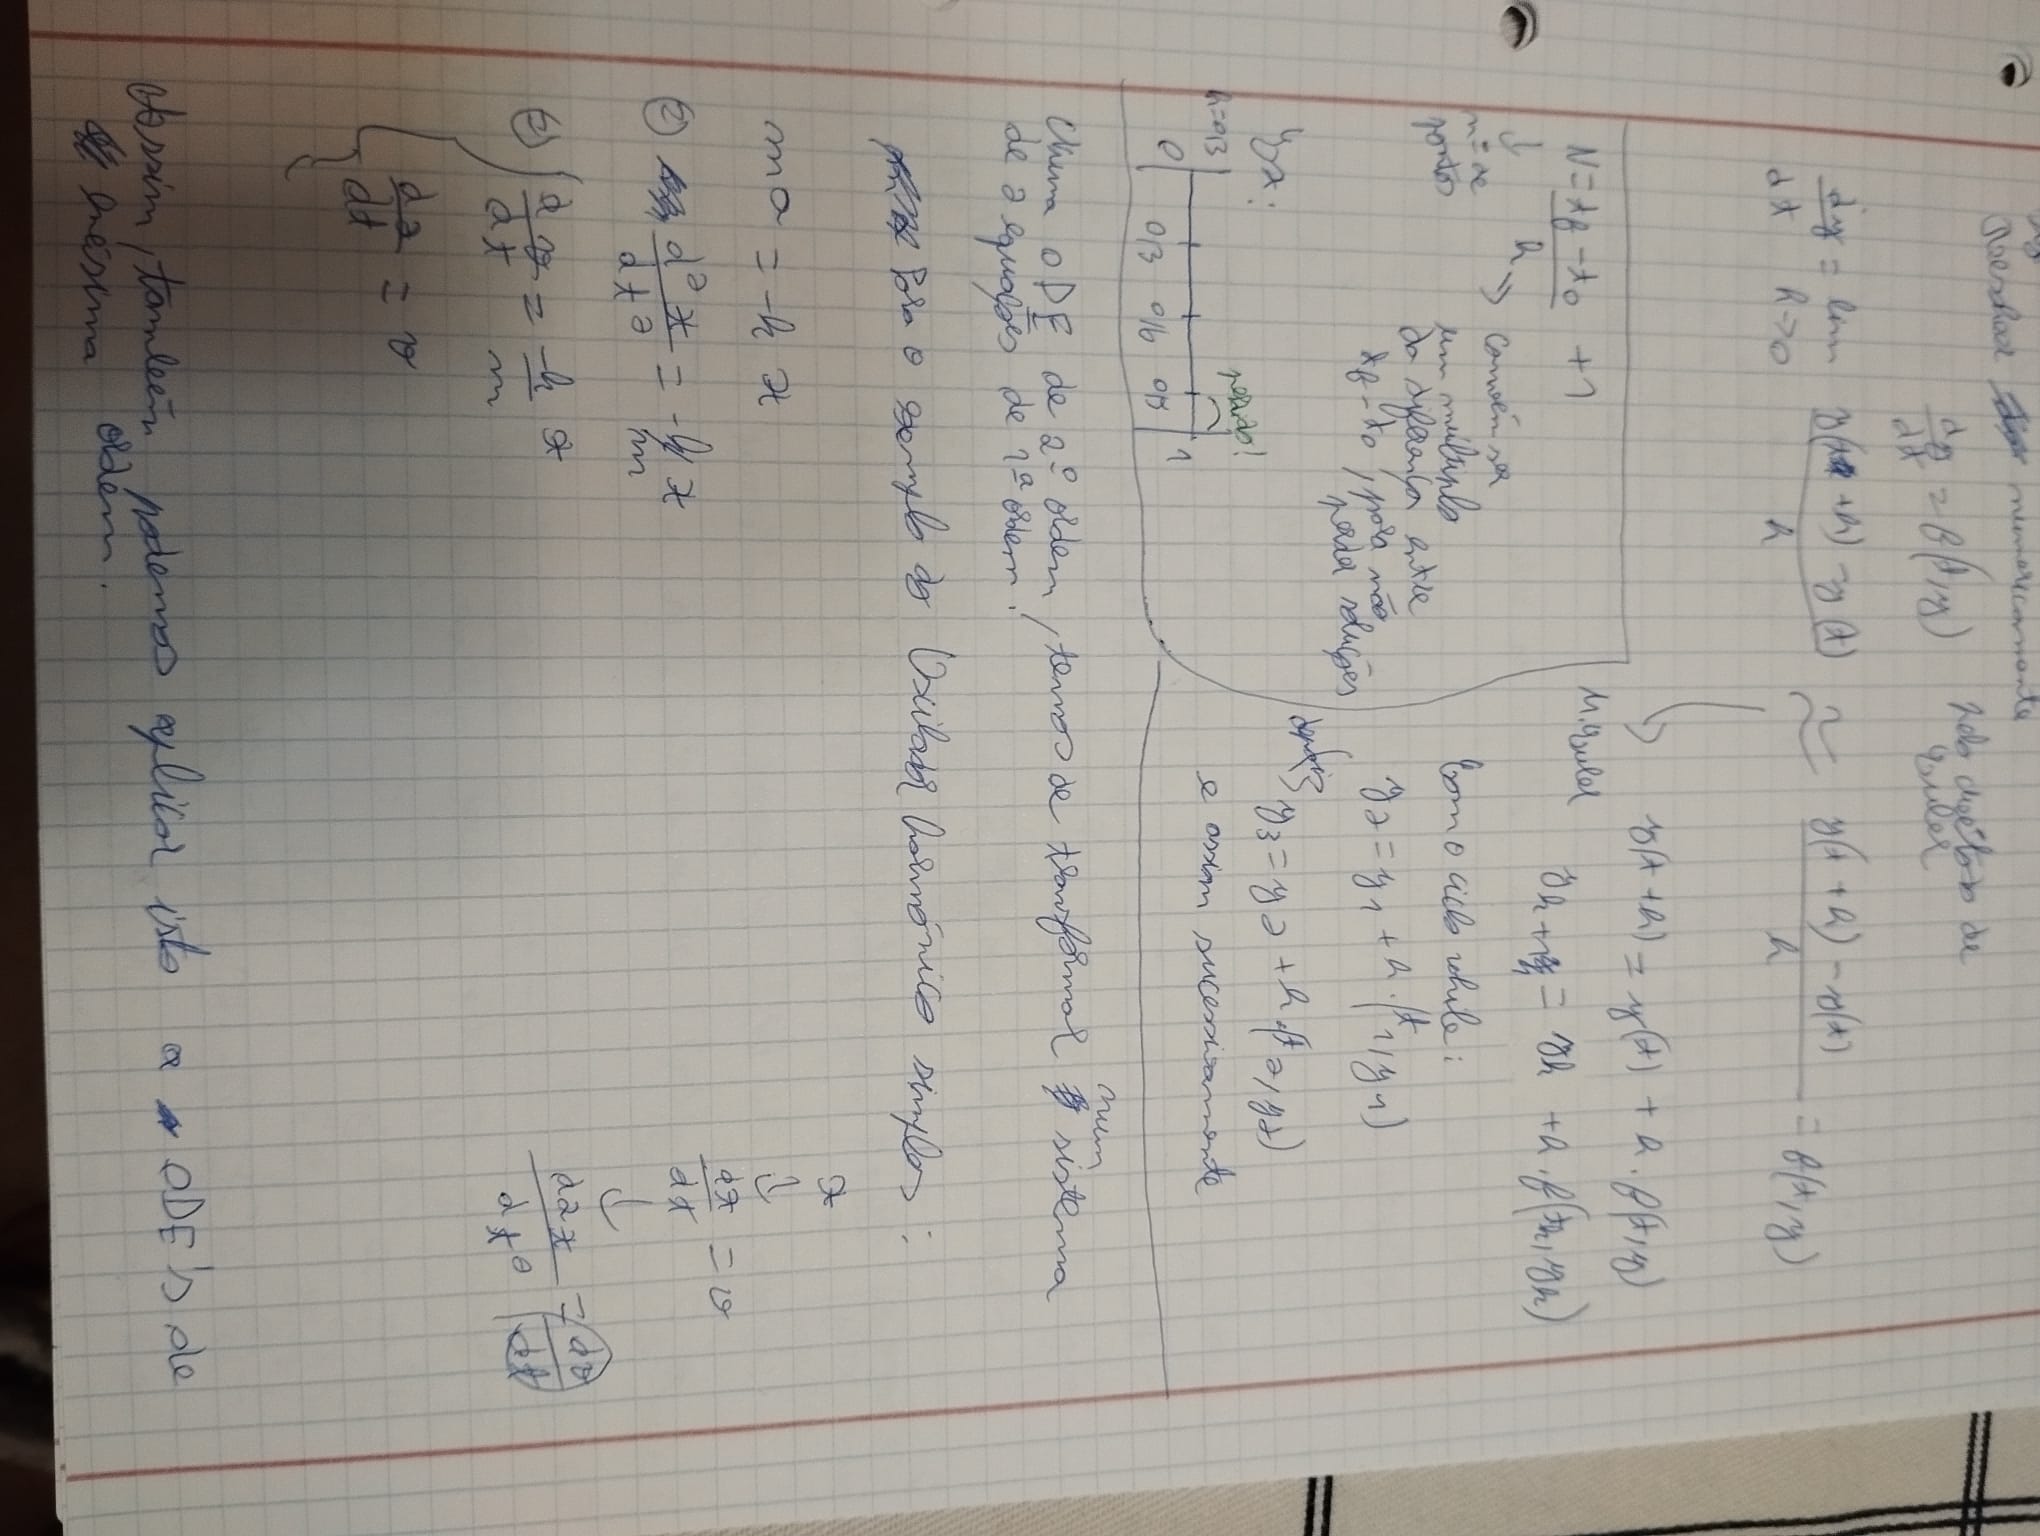 Resolver numericamente
dy/dt = f(t,y) pelo método de Euler
dy/dt = lim h->0 (y(t+h) - y(t))/h ≈ (y(t+h) - y(t))/h = f(t,y)
y(t+h) = y(t) + h . f(t,y)
M. Euler
y_{k+1} = y_k + h . f(t_k, y_k)
N = (t_f - t_0)/h + 1
↓
nº de pontos
→ convém ser
um múltiplo
da diferença entre
t_f - t_0, para não
perder soluções
Com o ciclo while:
y_2 = y_1 + h . (t_1, y_1)
depois
y_3 = y_2 + h . (t_2, y_2)
e assim sucessivamente
Ex:
perdido!
h=0,3
0 0,3 0,6 0,9 1
Numa ODE de 2º ordem, temos de transformar num sistema
de 2 equações de 1ª ordem.
Para o exemplo do Oscilador harmónico simples:
ma = -k x
⇔ d²x/dt² = -k/m x
⇔ { dv/dt = -k/m x
dx/dt = v
x
↓
dx/dt = v
↓
d²x/dt² = dv/dt
Assim, também podemos aplicar isto a ODE's de
enésima ordem.